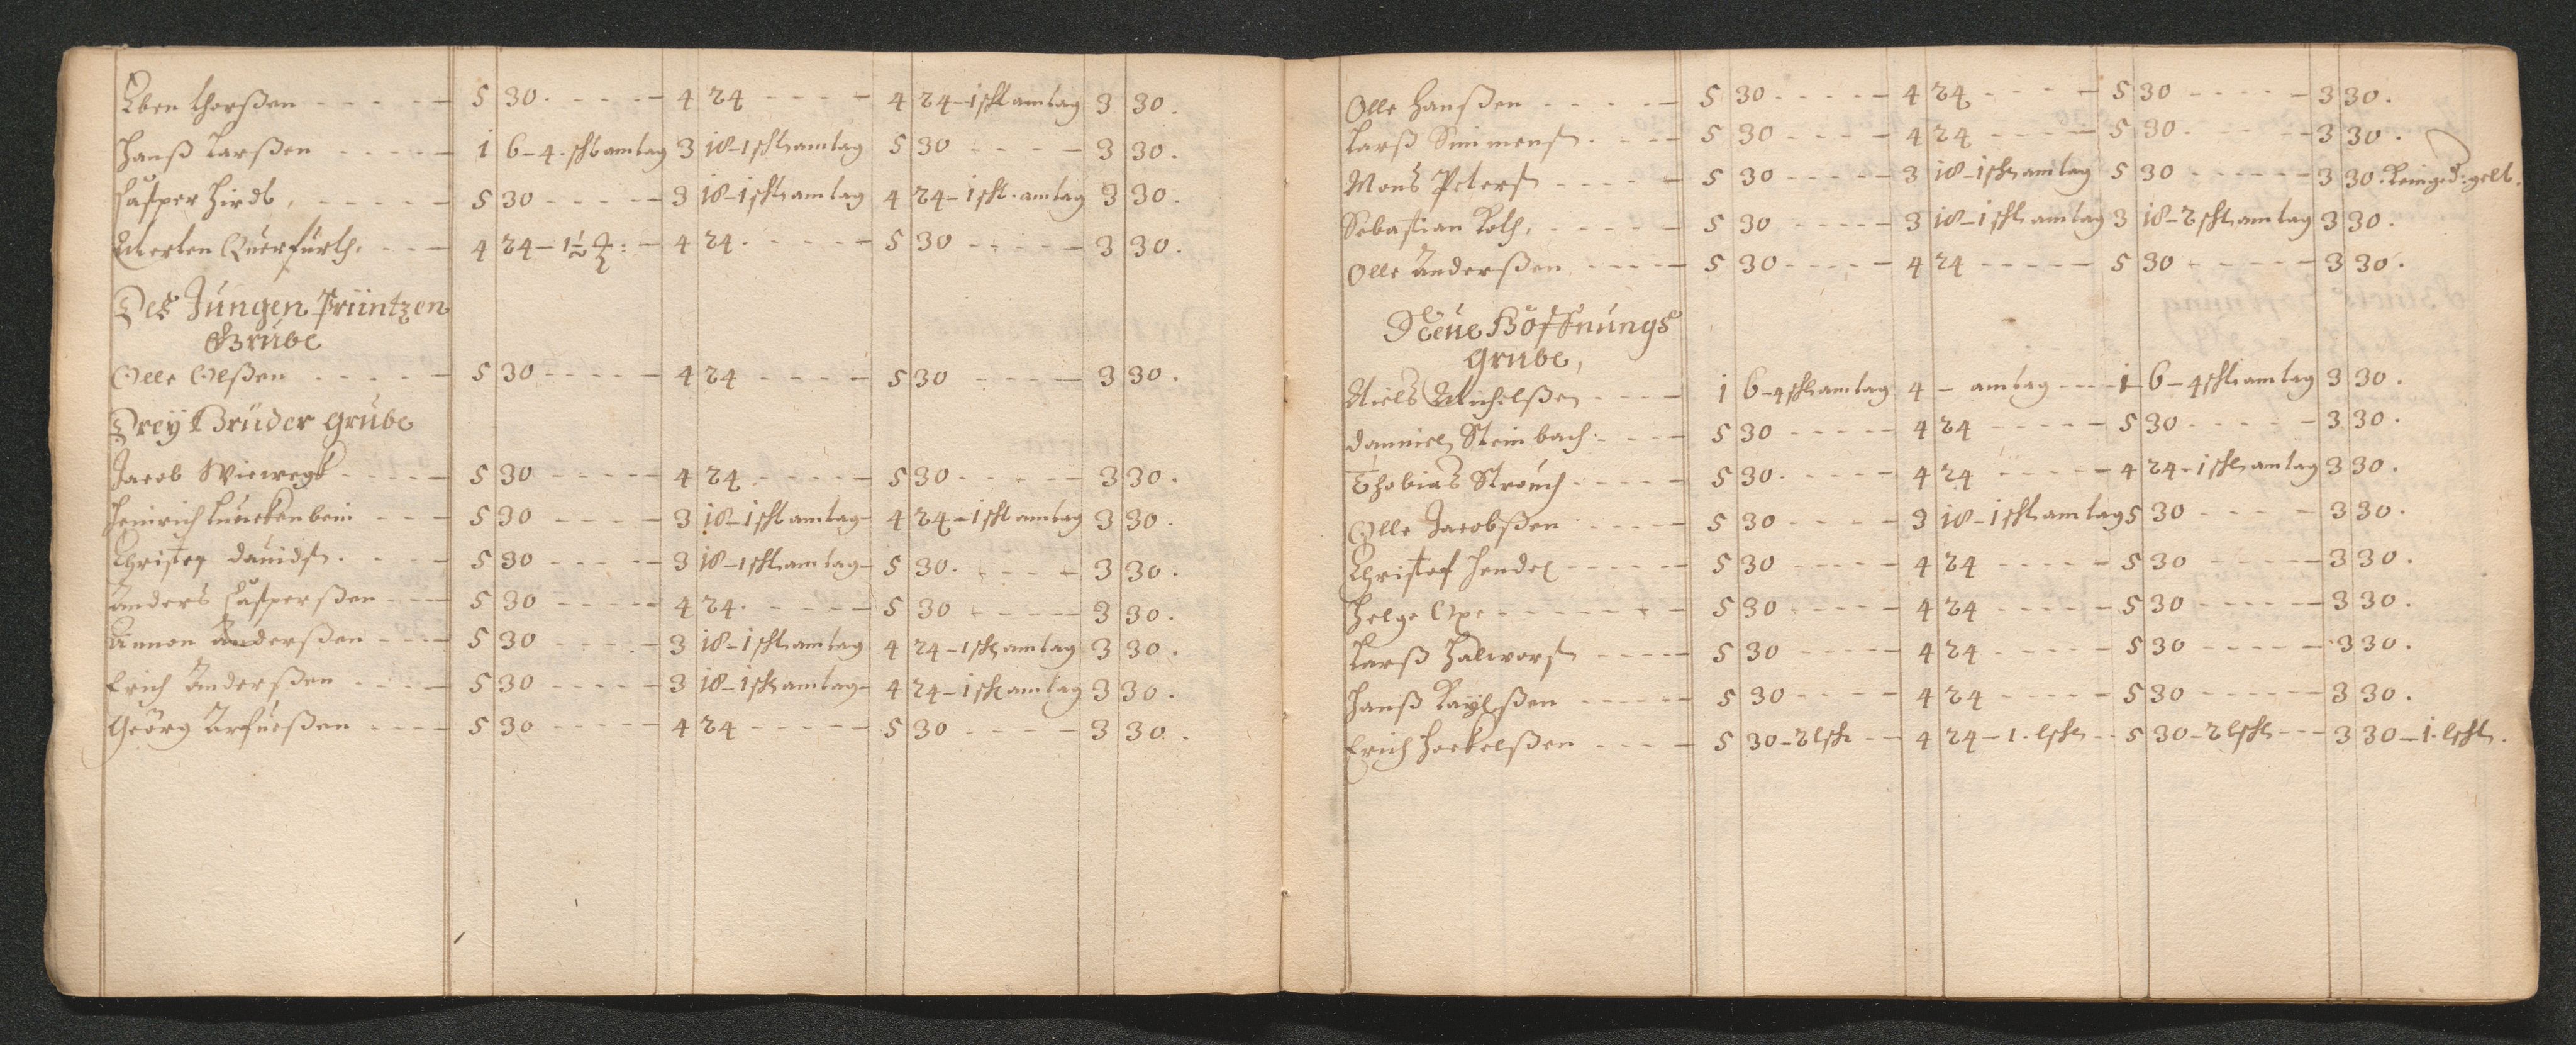 Eben thorßen - - - - - 5 30. - - - - 4 24 - - - - 4 24 - 1 schl amtag 3 30.
Hanß Larßen - - - - - 1 6 - 4. schl amtag 3 18 - 1 schl amtag 5 30 - - - - 3 30.
Casper Hirdt, - - - - - 5 30 - - - - - 3 18 - 1 schl amtag 4 24 - 1 schl. amtag 3 30.
Merten Querfurth, - - - 4 24 - 1½ : - 4 24. - - - - - 5 30 - - - - - 3 30.
Des Jungen Printzen
Grube
Olle Olßen - - - - - 5 30 - - - - - 4 24 - - - - - 5 30 - - - - 3 30.
Dreÿ Brüder Grube
Jacob Wiewegk - - - - 5 30 - - - - - 4 24 - - - - - 5 30 - - - - - 3 30.
Heinrich Kuckenbein - - - 5 30 - - - - 3 18 - 1 schl amtag - 4 24 - 1 schl amtag 3 30.
Christof Davidß. - - - - 5 30 - - - - - 3 18 - 1 schl amtag - 5 30. - - - - 3 30.
Anders Casperßen - - - 5 30 - - - - - 4 24. - - - - - 5 30 - - - - - 3 30.
Amon Anderßen - - - - 5 30 - - - - - 3 18 - 1 schl amtag 4 24 - 1 schl amtag 3 30.
Erich Anderßen - - - - 5 30 - - - - - 3 18 - 1 schl amtag - 4 24 - 1 schl amtag 3 30.
Georg Arfueßen - - - - 5 30 - - - - - 4 24 - - - - - 5 30 - - - - - 3 30.
Olle Hanßen - - - - - 5 30 - - - - - 4 24 - - - - 5 30 - - - - - 3 30.
Larß Simmenß. - - - - 5 30 - - - - - 4 24 - - - - - 5 30. - - - - - 3 30.
Mons Peterß - - - - - 5 30 - - - - - 3 18 - 1 schl amtag 5 30 - - - - - 3 30. gelt.
Sebastian Roth, - - - - - 5 30 - - - - - 3 18 - 1 schl amtag 3 18 - 2 schl amtag 3 30.
Olle Anderßen - - - - 5 30 - - - - - 4 24 - - - - - 5 30 - - - - - 3 30.
Neue Hoffnungs
Grube,
Niels Michelßen - - - - 1 6 - 4 schl amtag 4 - amtag - - - 1 6 - 4 schl amtag 3 30.
Danniel Steinbach. - - - - 5 30 - - - - - 4 24 - - - - - 5 30 - - - - - 3 30.
Thobias Strauch - - - - - 5 30. - - - - - 4 24 - - - - - 4 24 - 1 schl amtag 3 30.
Olle Jacobßen - - - - - 5 30 - - - - - 3 18 - 1 schl amtag 5 30 - - - - 3 30.
Christof Hendel - - - - - 5 30 - - - - - 4 24 - - - - - 5 30 - - - - - 3 30.
Helge Oxe - - - - - - - 5 30 - - - - - 4 24 - - - - - 5 30 - - - - - 3 30.
Larß Halworß - - - - - 5 30 - - - - - 4 24 - - - - - 5 30 - - - - - 3 30.
Hanß Kaÿlßen - - - - - 5 30 - - - - - 4 24 - - - - - 5 30 - - - - - 3 30.
Erich Hockelßen - - - - 5 30 - 2 lschl - - 4 24 - 1. lschl - - 5 30 - 2 lschl - - - 3 30 - 1. lschl.